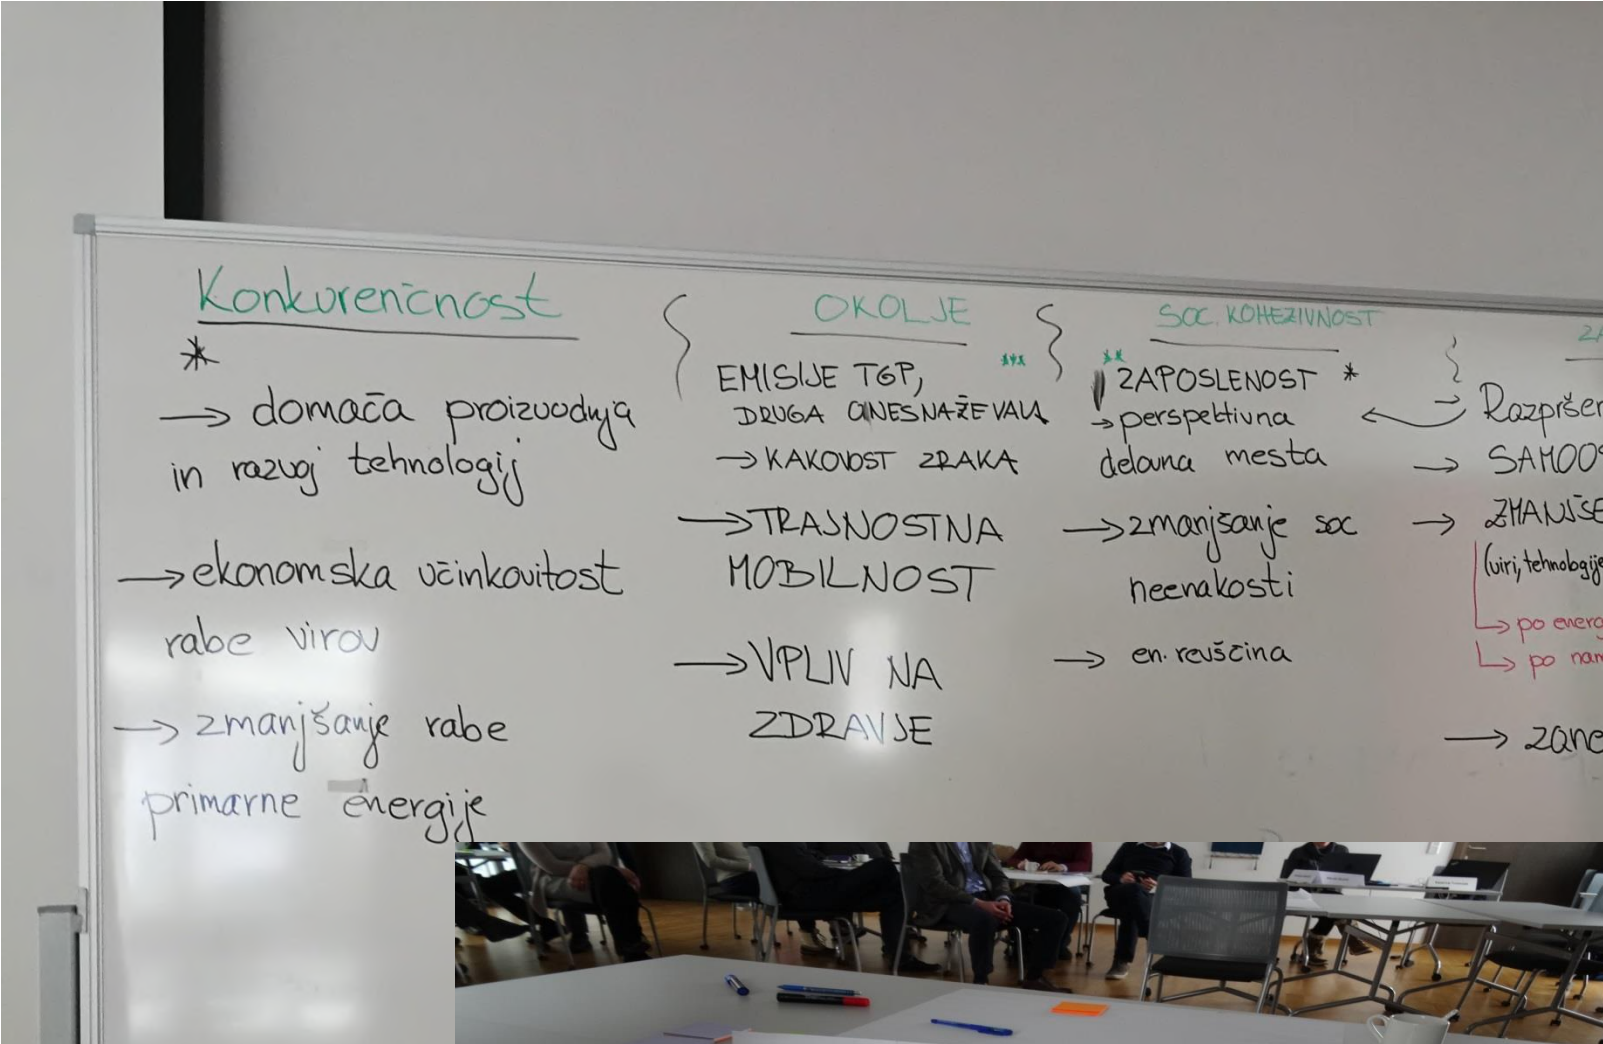 Konkurenčnost
*
→ domača proizvodnja
in razvoj tehnologij
→ ekonomska učinkovitost
rabe virov
→ zmanjšanje rabe
primarne energije
OKOLJE
***
EMISIJE TGP,
DRUGA ONESNAŽEVALA
→ KAKOVOST ZRAKA
→ TRAJNOSTNA
MOBILNOST
→ VPLIV NA
ZDRAVJE
SOC. KOHEZIVNOST
**
ZAPOSLENOST *
→ perspektivna
delovna mesta
→ zmanjšanje soc
neenakosti
→ en. revščina
ZA
→ Razpršen
→ SAMOOS
→ ZMANJŠE
(viri, tehnologije
→ po energ
→ po nam
→ zane